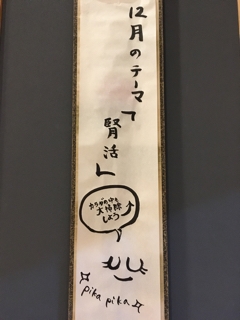 12月のテーマ
「腎活」
からだの中も
大掃除
しよう
pika pika